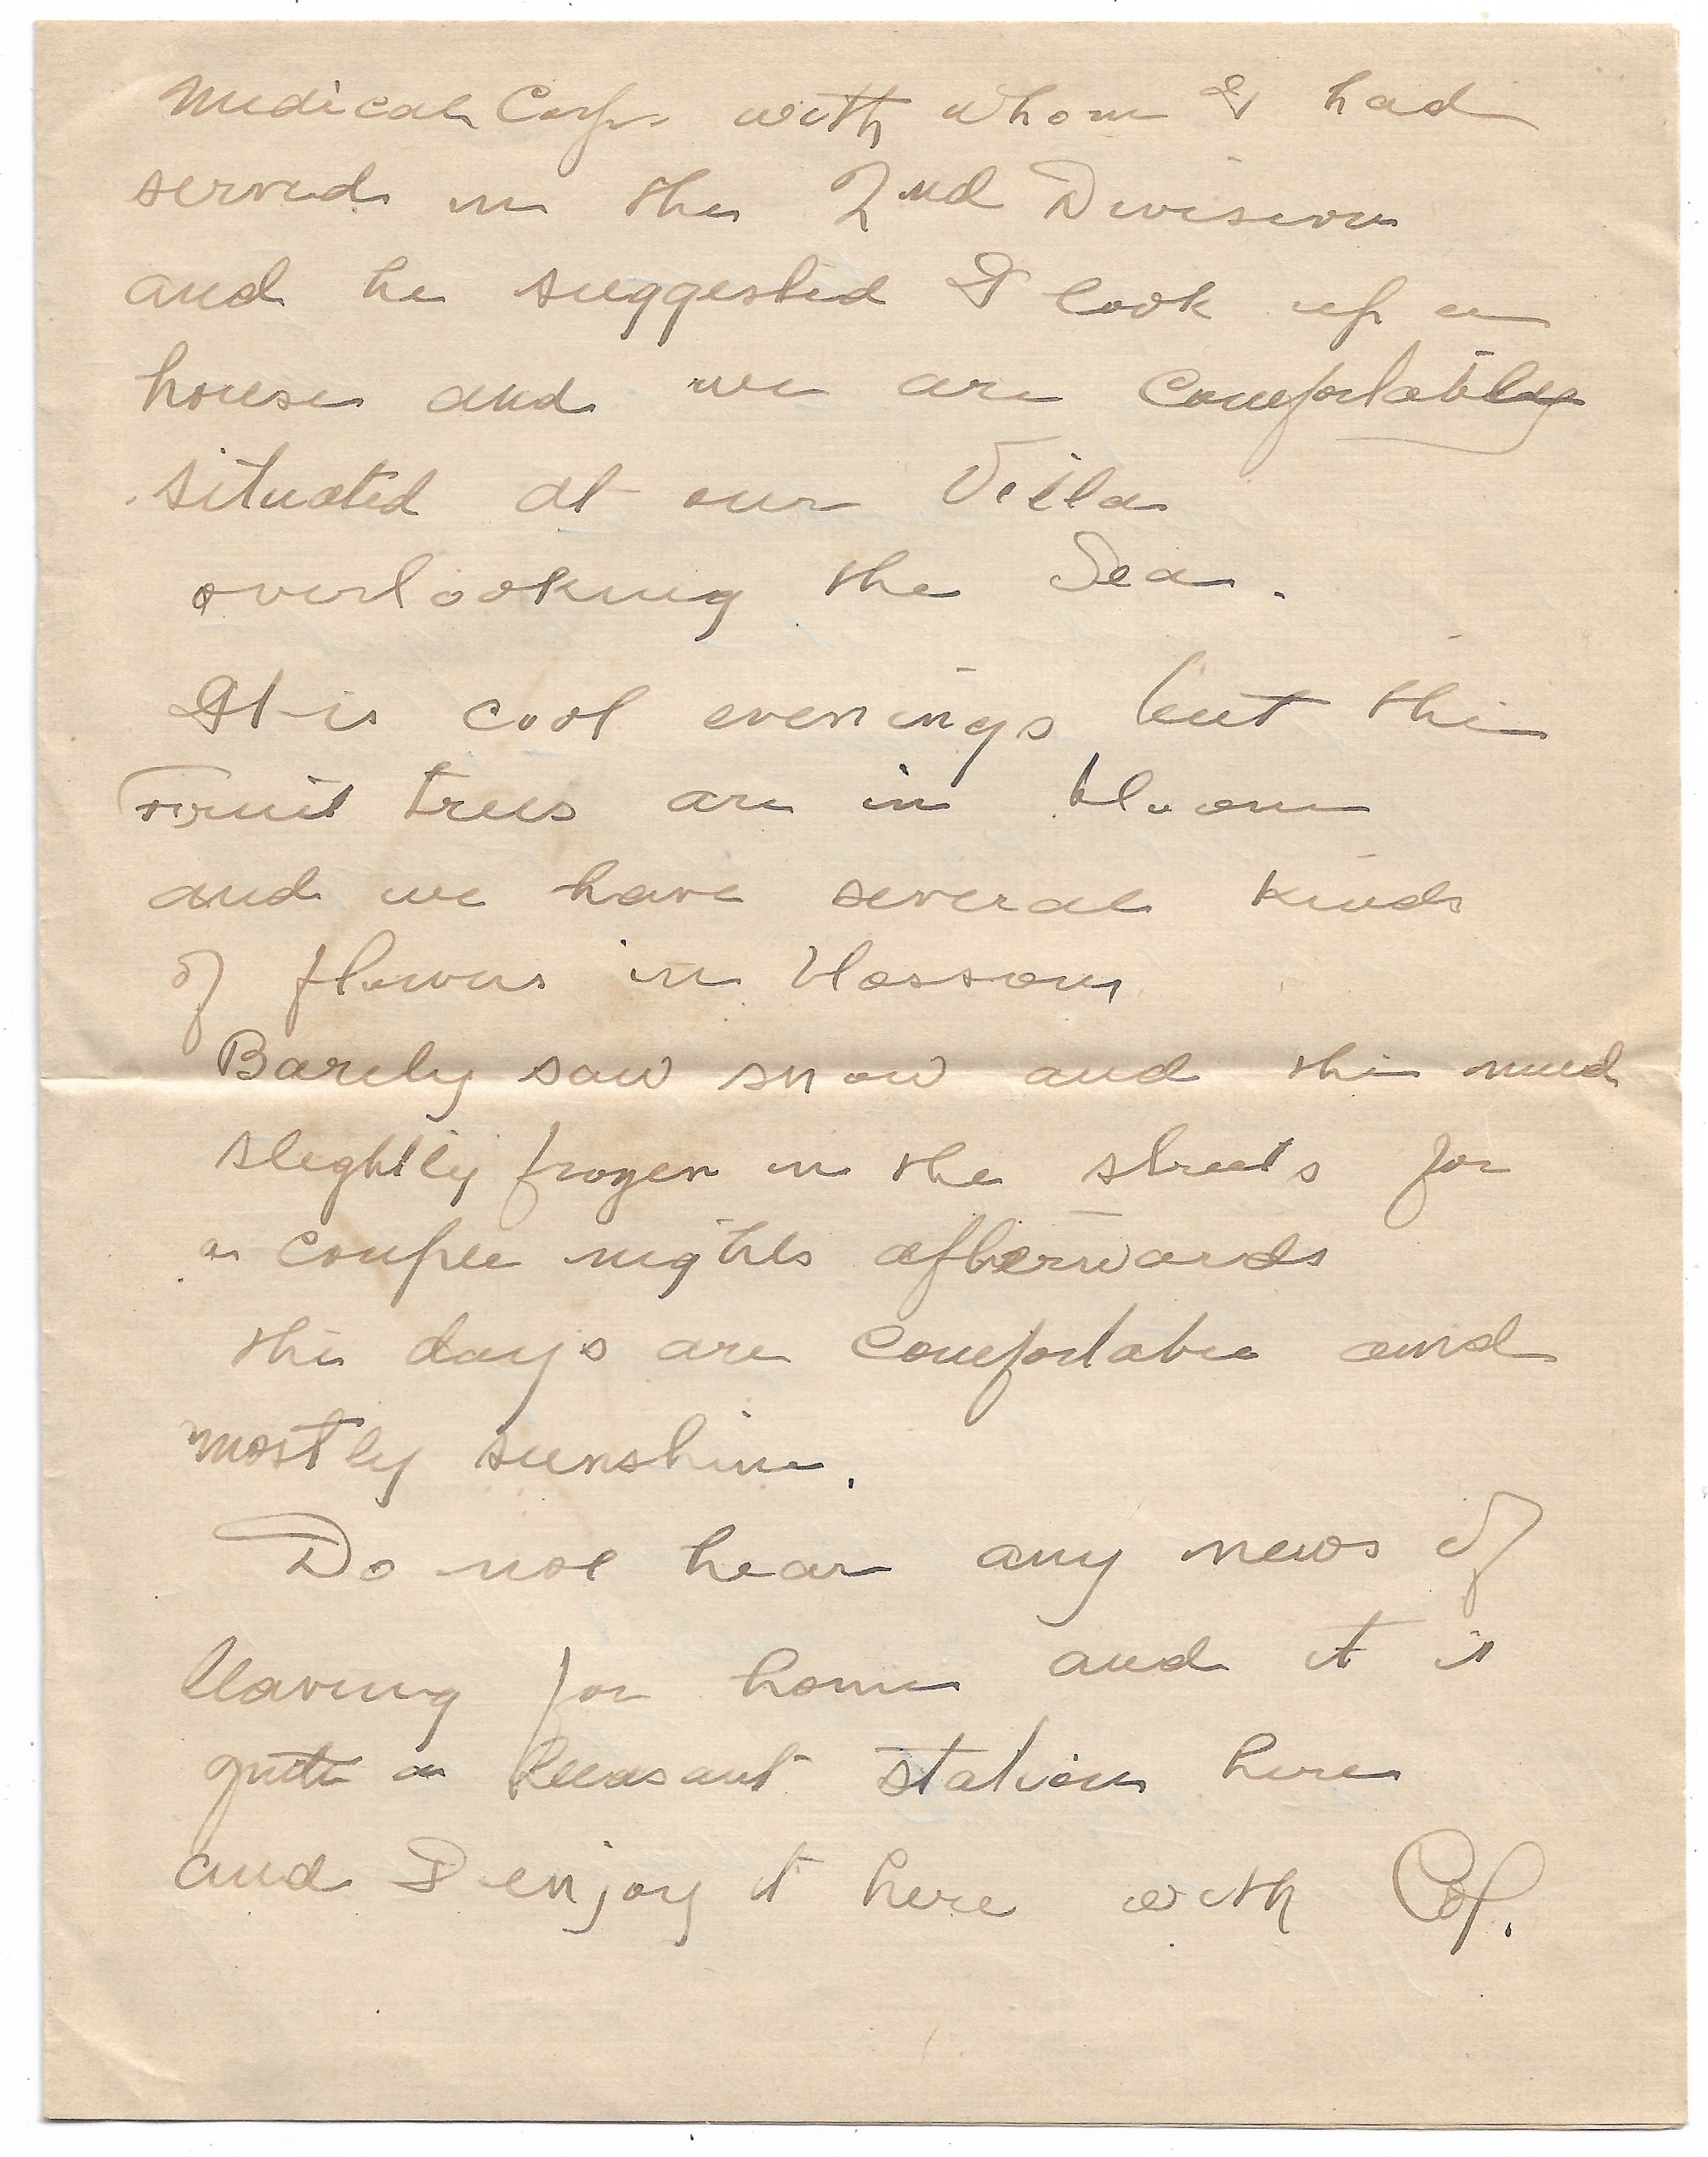 Medical Corps with whom I had
served in the 2nd Division
and he suggested I look up a
house and we are comfortably
situated at our Villa
overlooking the Sea.
It is cool evenings but the
Fruit trees are in bloom
and we have several kinds
of flowers in blossom
Barely saw snow and the mud
slightly frozen in the streets for
a couple nights afterwards
the days are comfortable and
mostly sunshine.
Do not hear any news of
leaving for home and it is
quite a pleasant station here
and I enjoy it here with